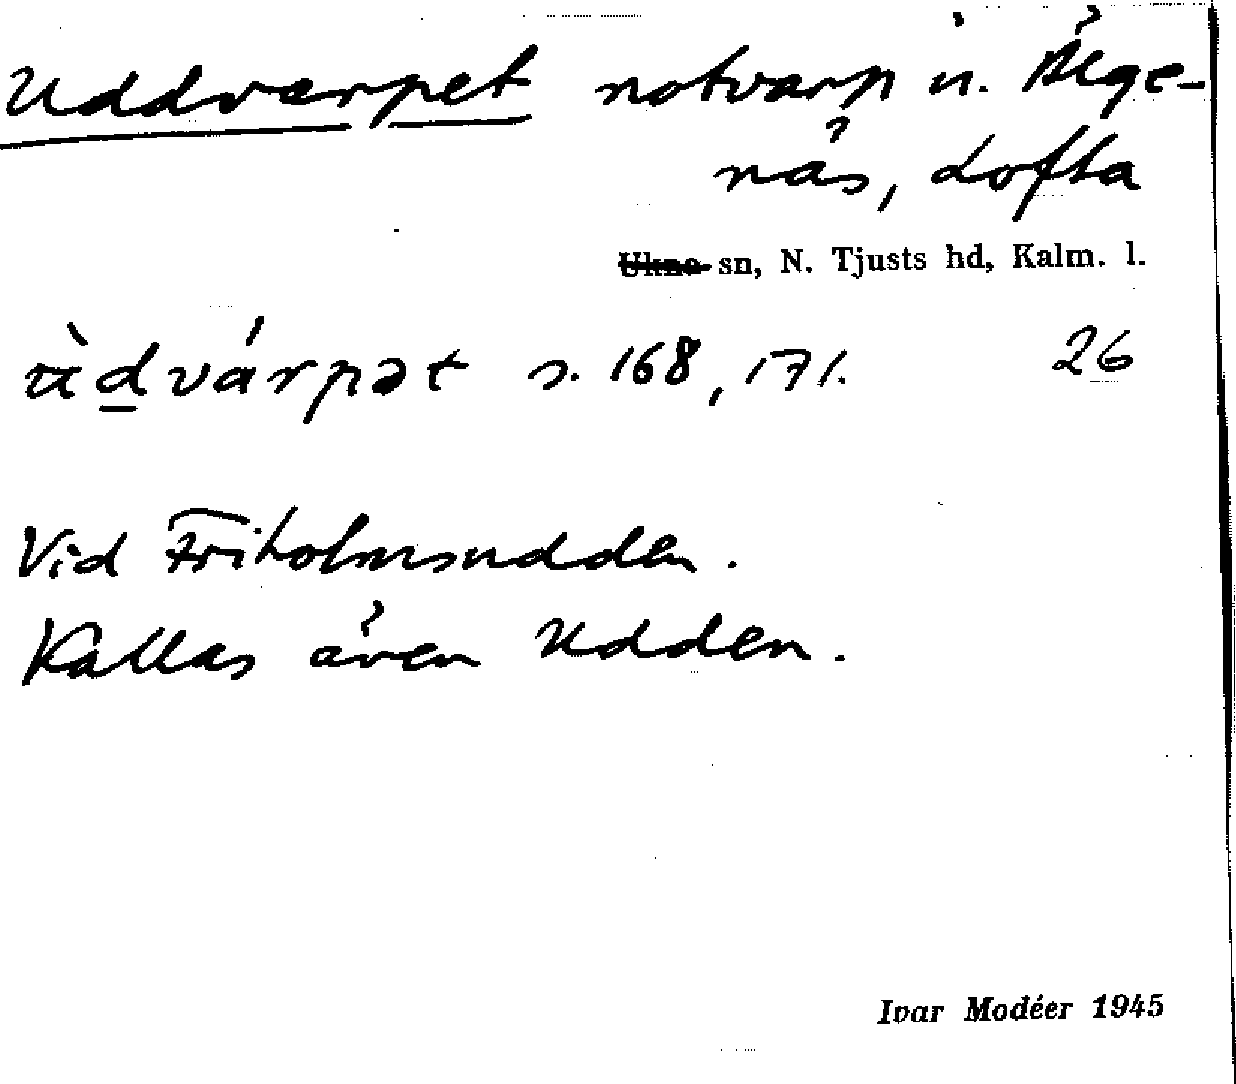 Uddvarpet notvarp u. Älge-
näs, Lofta
Ukna sn, N. Tjusts hd, Kalm. l.
ùdvárpət s. 168, 171. 26
Vid Friholmsudden.
Kallas även Udden.
Ivar Modéer 1945